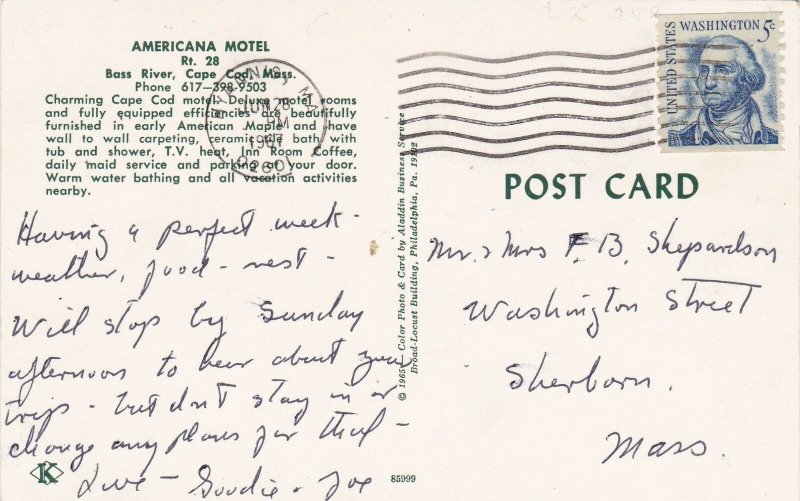 AMERICANA MOTEL
Rt. 28
Bass River, Cape Cod, Mass.
Phone 617—398-9503
Charming Cape Cod motel. Deluxe motel rooms
and fully equipped efficiencies are beautifully
furnished in early American Maple and have
wall to wall carpeting, ceramic tile bath with
tub and shower, T.V. heat, Inn Room Coffee,
daily maid service and parking at your door.
Warm water bathing and all vacation activities
nearby.
HYANNIS, MA
JUN 28
PM
1967
02601
UNITED STATES
WASHINGTON 5c
POST CARD
© 1965 — Color Photo & Card by Aladdin Business Service
Broad-Locust Building, Philadelphia, Pa. 19102
Having a perfect week -
weather, food - rest -
Will stop by Sunday
afternoon to hear about your
trips - but don't stay in or
change any plans for that -
Love - Goodie & Joe
Mr. & Mrs F. B. Shepardson
Washington Street
Sherborn.
Mass.
K
85999